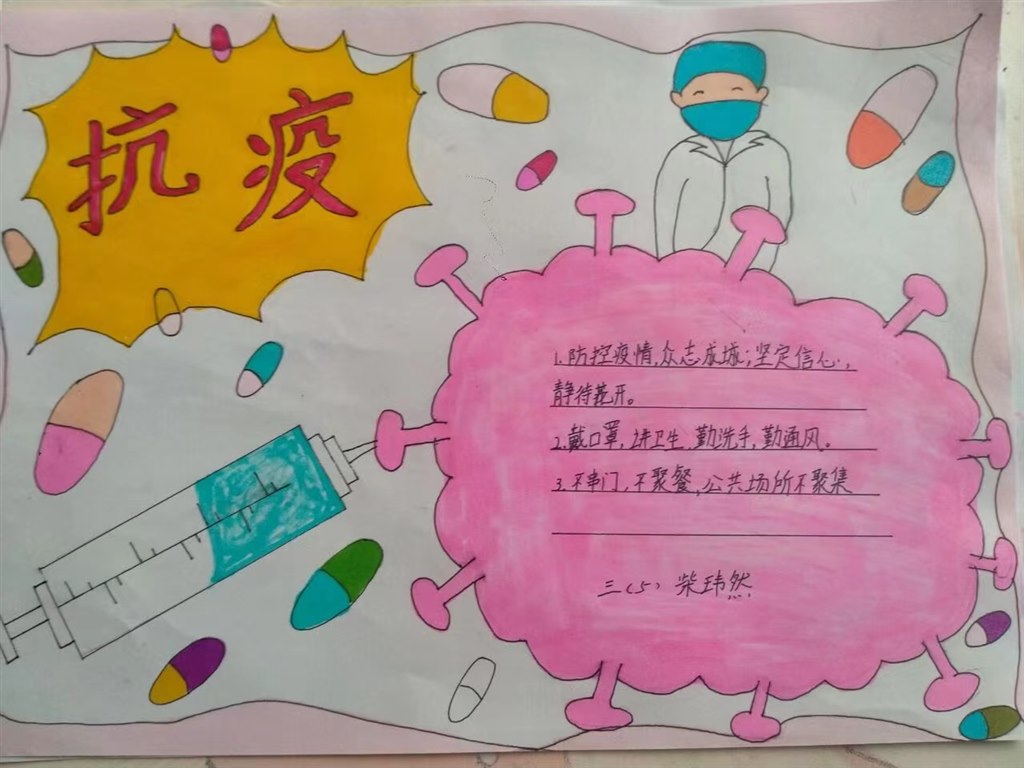 抗疫
1.防控疫情,众志成城;坚定信心,
静待花开。
2.戴口罩,讲卫生,勤洗手,勤通风。
3.不串门,不聚餐,公共场所不聚集
三(5) 柴玮然